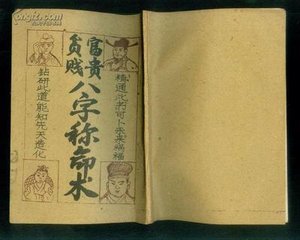 富貴
貧贱
八字称命术
精通此书可卜未来祸福
钻研此道能知先天造化